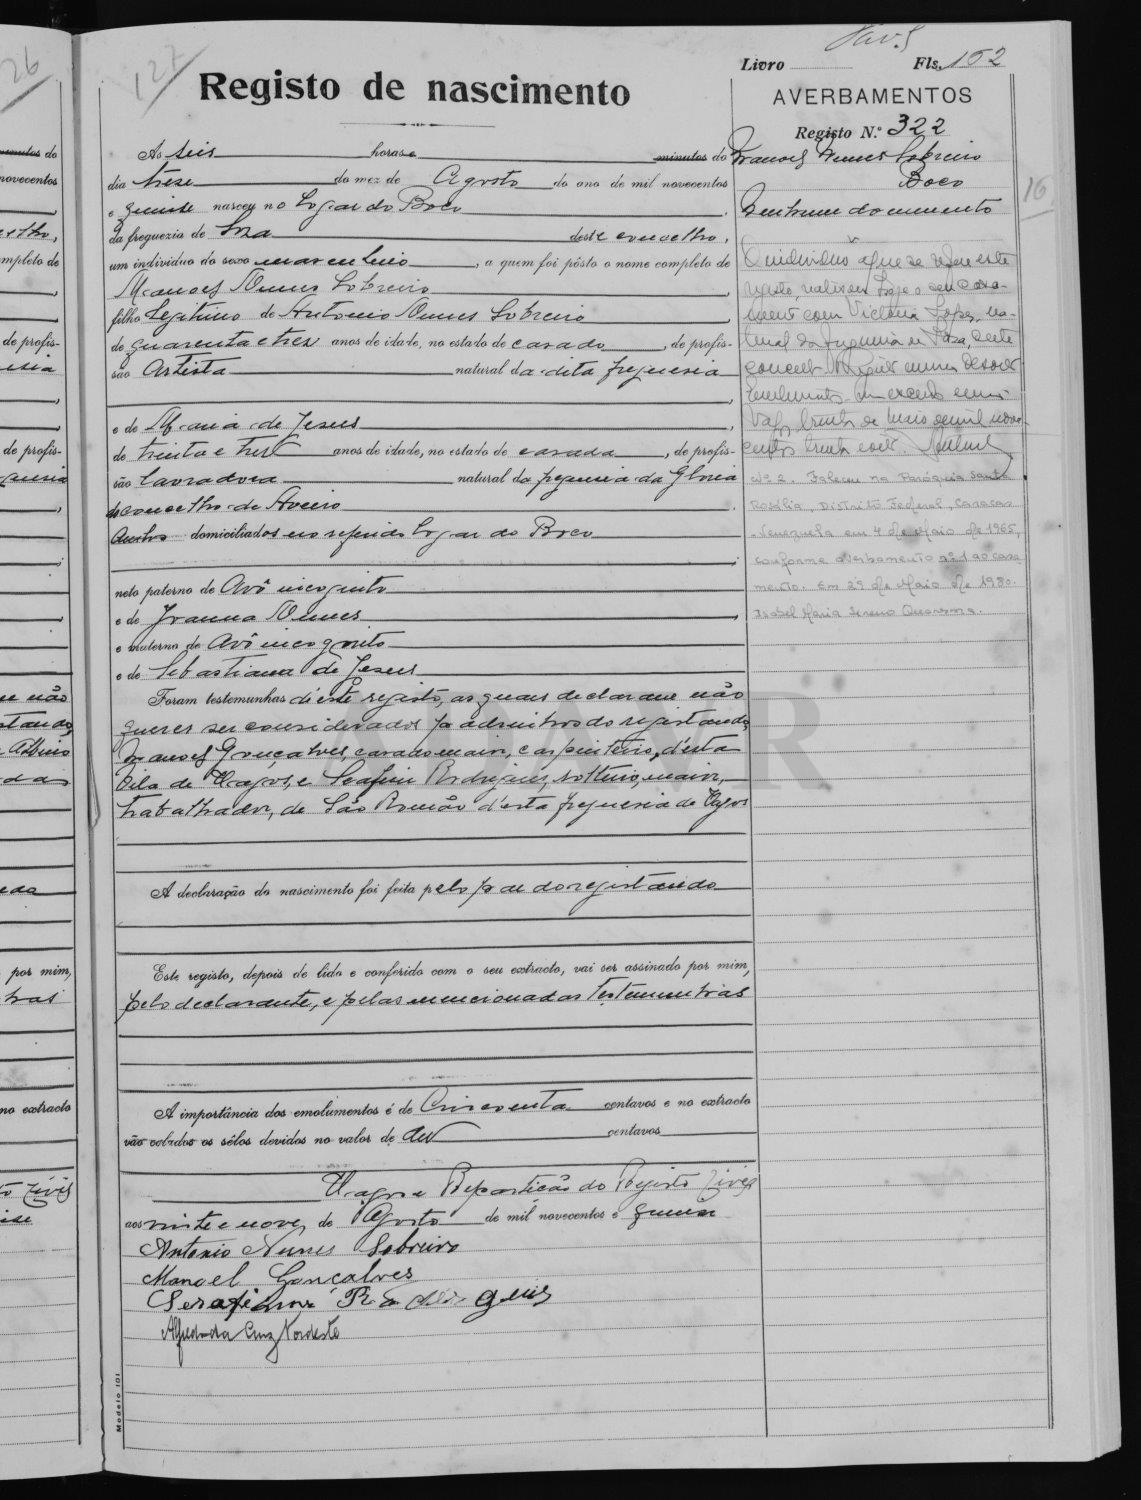 127
Registo de nascimento
Ás seis horas e minutos do
dia treze do mez de Agosto do ano de mil novecentos
e quinze nasceu no Logar do Boco
da freguezia de Soza deste concelho,
um individuo do sexo masculino, a quem foi pôsto o nome completo de
Manoel Nunes Sobreiro,
filho legitimo de Antonio Nunes Sobreiro,
de quarenta e tres anos de idade, no estado de casado, de profis-
são Artista natural da dita freguesia
e de Maria de Jesus,
de trinta e tres anos de idade, no estado de casada, de profis-
são lavradora natural da freguesia da Gloria
do concelho de Aveiro.
Ambos domiciliados no referido Logar do Boco
neto paterno de Avô incognito
e de Joanna Nunes
e materno de Avô incognito
e de Sebastiana de Jesus
Foram testemunhas d'este registo, as quaes declararam não
querer ser considerados padrinhos do registando,
Manoel Gonçalves, casado, maior, carpinteiro, d'esta
Vila de Vagos, e Serafim Rodrigues, solteiro, maior,
trabalhador, de São Romão d'esta freguesia de Vagos
A declaração do nascimento foi feita pelo pae do registando
Este registo, depois de lido e conferido com o seu extracto, vai ser assinado por mim,
pelo declarante, e pelas mencionadas testemunhas
A importância dos emolumentos é de Cincoenta centavos e no extracto
vão colados os sêlos devidos no valor de dez centavos
Vagos e Repartição do Registo Civil
aos vinte e nove de Agosto de mil novecentos e quinze
Antonio Nunes Sobreiro
Manoel Gonçalves
Serafim Rodrigues
Alfredo da Cruz Nordeste
Modelo 101
Livro Fls. 162
AVERBAMENTOS
Registo N.º 322
Manoel Nunes Sobreiro
Boco
Nenhum documento
O individuo a que se refere este
registo, realizou hoje o seu casa-
mento com Victoria Lopes, na-
tural da freguesia de Soza, deste
concelho.
Vagos, trinta de Maio de mil nove-
centos trinta e oito.
Nº 2. Faleceu na Paróquia Santa
Rosália, Distrito Federal, Caracas
- Venezuela em 4 de Maio de 1965,
conforme averbamento nº 1 ao casa-
mento. Em 29 de Maio de 1980.
Isabel Maria Sereno Quaresma.
16
26